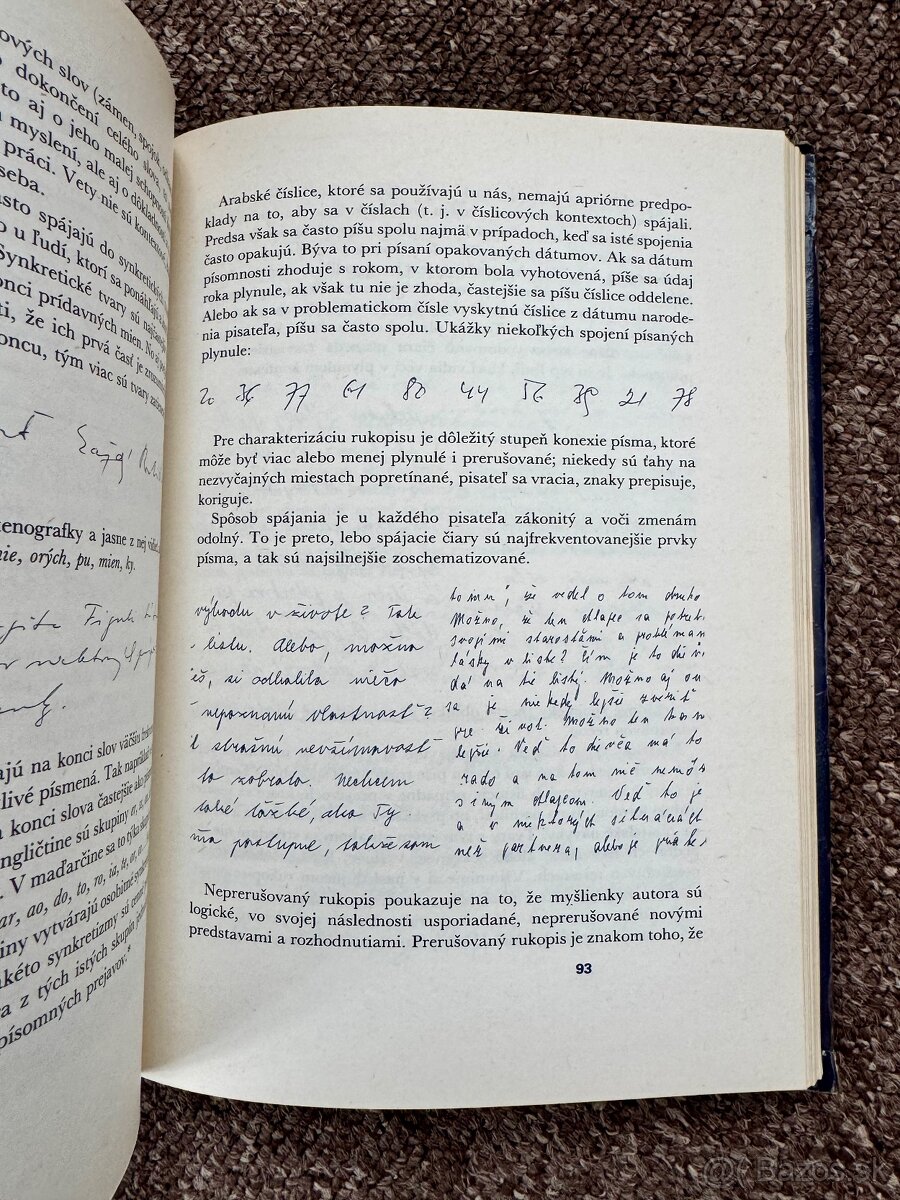 ových slov (zámen, spojok,
dokončení celého slova.
to aj o jeho malej schopnosti
myslení, ale aj o dôkladnosti
práci. Vety nie sú
seba.
sto spájajú do synkretických
o u ľudí, ktorí sa ponáhľajú
Synkretické tvary sú
onci prídavných mien. No aj
ti, že ich prvá časť je
oncu, tým viac sú tvary
tenografky a jasne z nej
nie, orých, pu, mien, ky.
ajú na konci slov väčšiu
tlivé písmená. Tak
a konci slova častejšie ako
ngličtine sú skupiny
V maďarčine sa to týka
ar, ao, do, to, ro, ia, te,
iny vytvárajú osobitné
akéto synkretizmy sú
ra z tých istých skupín
písomných prejavov.*
Arabské číslice, ktoré sa používajú u nás, nemajú apriórne predpo-
klady na to, aby sa v číslach (t. j. v číslicových kontextoch) spájali.
Predsa však sa často píšu spolu najmä v prípadoch, keď sa isté spojenia
často opakujú. Býva to pri písaní opakovaných dátumov. Ak sa dátum
písomnosti zhoduje s rokom, v ktorom bola vyhotovená, píše sa údaj
roka plynule, ak však tu nie je zhoda, častejšie sa píšu číslice oddelene.
Alebo ak sa v problematickom čísle vyskytnú číslice z dátumu narode-
nia pisateľa, píšu sa často spolu. Ukážky niekoľkých spojení písaných
plynule:
20 36 77 61 80 44 56 39 21 78
Pre charakterizáciu rukopisu je dôležitý stupeň konexie písma, ktoré
môže byť viac alebo menej plynulé i prerušované; niekedy sú ťahy na
nezvyčajných miestach popretínané, pisateľ sa vracia, znaky prepisuje,
koriguje.
Spôsob spájania je u každého pisateľa zákonitý a voči zmenám
odolný. To je preto, lebo spájacie čiary sú najfrekventovanejšie prvky
písma, a tak sú najsilnejšie zoschematizované.
výhodu v živote? Tale
listu. Alebo, možno
iš, si odhalila niečo
nepoznanú vlastnosť?
strašnú nevšímavosť
to zobralo. Nechcem
také ťažké, ako Ty.
ma postupne, takže som
tomu, že vedel o tom druho
Možno, že ten chlapec sa potreb
svojimi starosťami a problémam
lásky v liste? Čím je to diev
dá na tie listy. Možno aj ou
sa je niekedy lepšie zveriť
pre život. Možno ten
lepšie. Veď to dievča má to
rado a na tom nič nemôž
s iným chlapcom. Veď to je
a v niektorých situáciách
než partnera, alebo je
Neprerušovaný rukopis poukazuje na to, že myšlienky autora sú
logické, vo svojej následnosti usporiadané, neprerušované novými
predstavami a rozhodnutiami. Prerušovaný rukopis je znakom toho, že
93
Bazos.sk